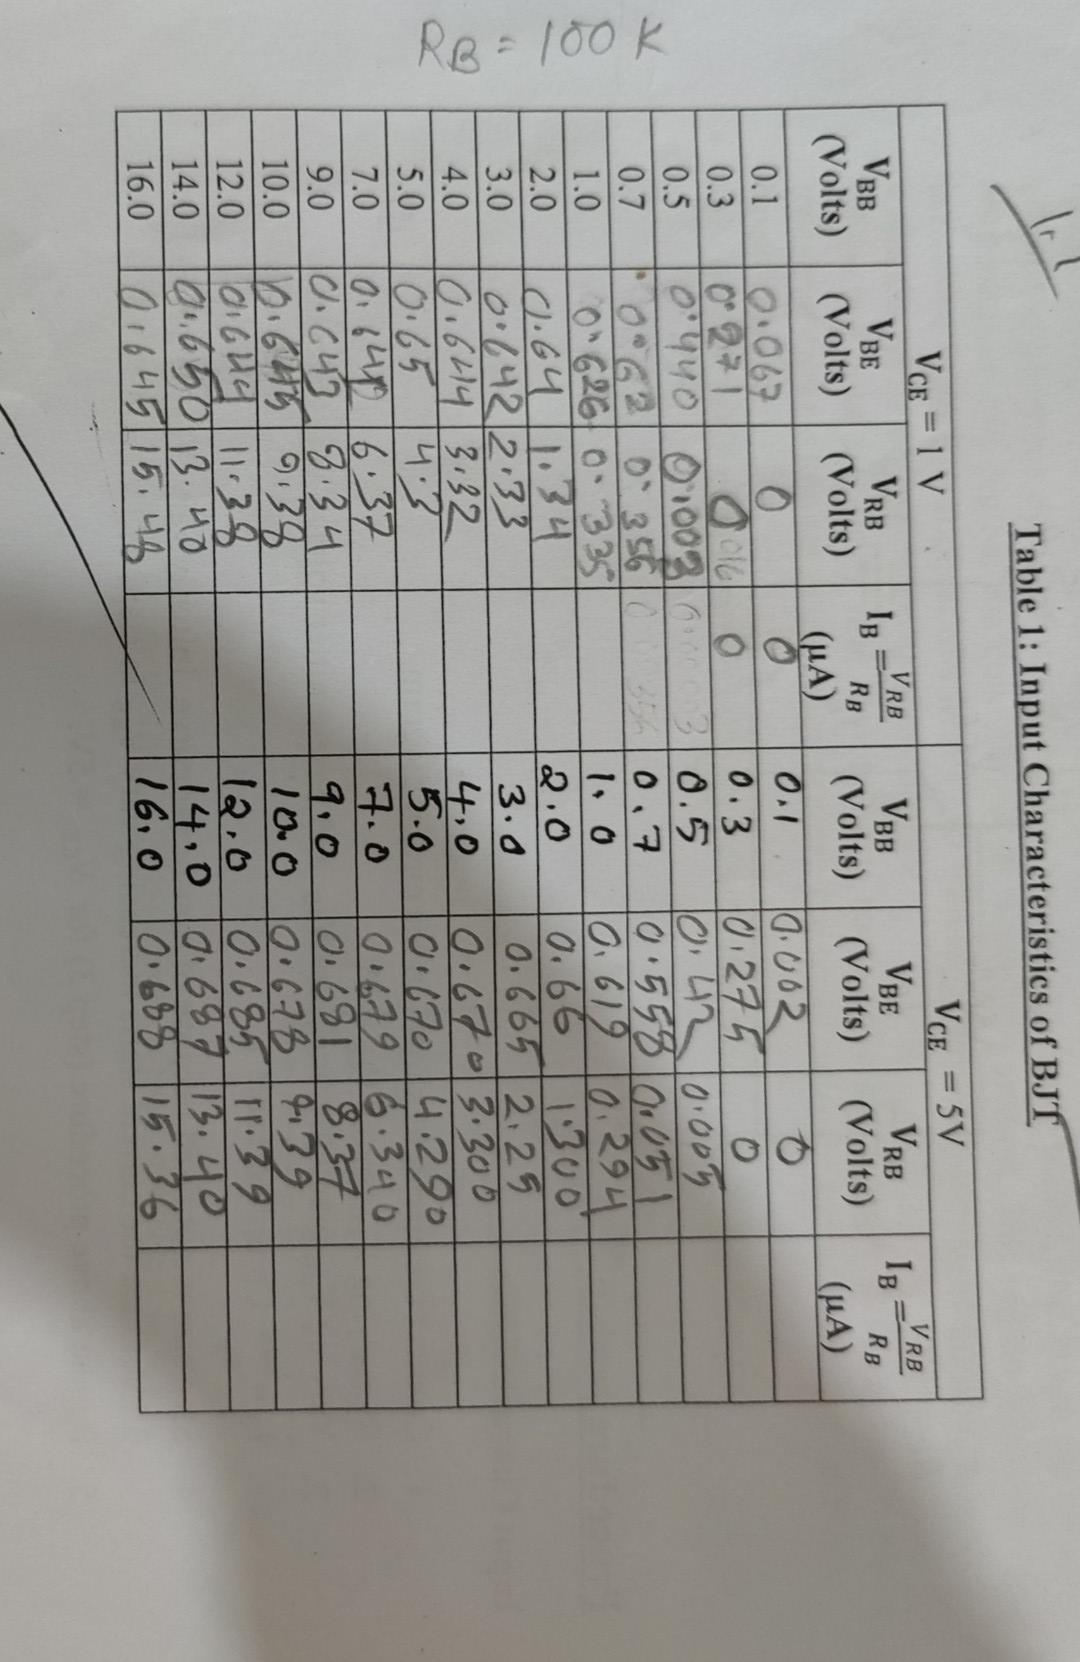 Table 1: Input Characteristics of BJT
V_CE = 1 V | V_CE = 5V
V_BB (Volts) | V_BE (Volts) | V_RB (Volts) | I_B = V_RB / R_B (µA) | V_BB (Volts) | V_BE (Volts) | V_RB (Volts) | I_B = V_RB / R_B (µA)
0.1 | 0.067 | 0 | 0 | 0.1 | 0.002 | 0 |
0.3 | 0.271 | 0 | 0 | 0.3 | 0.275 | 0 |
0.5 | 0.440 | 0.003 | | 0.5 | 0.42 | 0.005 |
0.7 | 0.62 | 0.356 | | 0.7 | 0.558 | 0.051 |
1.0 | 0.626 | 0.335 | | 1.0 | 0.619 | 0.294 |
2.0 | 0.64 | 1.34 | | 2.0 | 0.66 | 1.300 |
3.0 | 0.642 | 2.33 | | 3.0 | 0.665 | 2.25 |
4.0 | 0.644 | 3.32 | | 4.0 | 0.670 | 3.300 |
5.0 | 0.65 | 4.3 | | 5.0 | 0.670 | 4.290 |
7.0 | | 6.37 | | 7.0 | 0.679 | 6.340 |
9.0 | 0.643 | 8.34 | | 9.0 | 0.681 | 8.37 |
10.0 | 0.645 | 9.38 | | 10.0 | 0.678 | 9.39 |
12.0 | 0.644 | 11.38 | | 12.0 | 0.685 | 11.39 |
14.0 | 0.650 | 13.40 | | 14.0 | 0.687 | 13.40 |
16.0 | 0.645 | 15.48 | | 16.0 | 0.688 | 15.36 |
R_B = 100 K